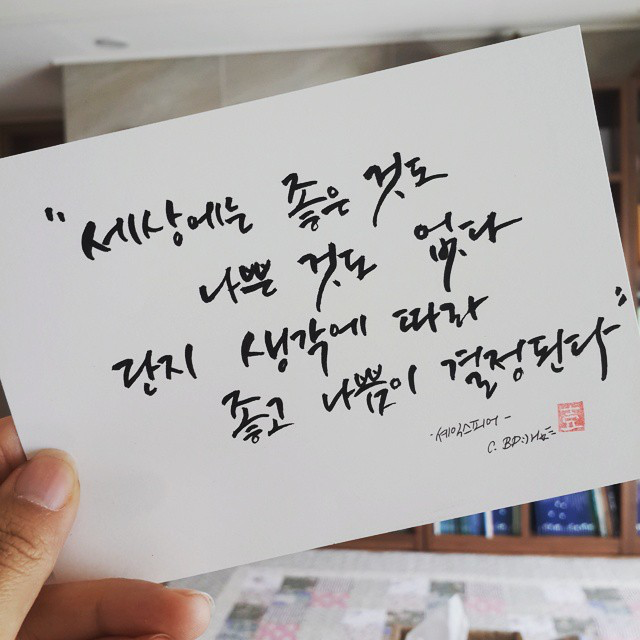 "세상에는 좋은 것도
나쁜 것도 없다
단지 생각에 따라
좋고 나쁨이 결정된다"
-셰익스피어-